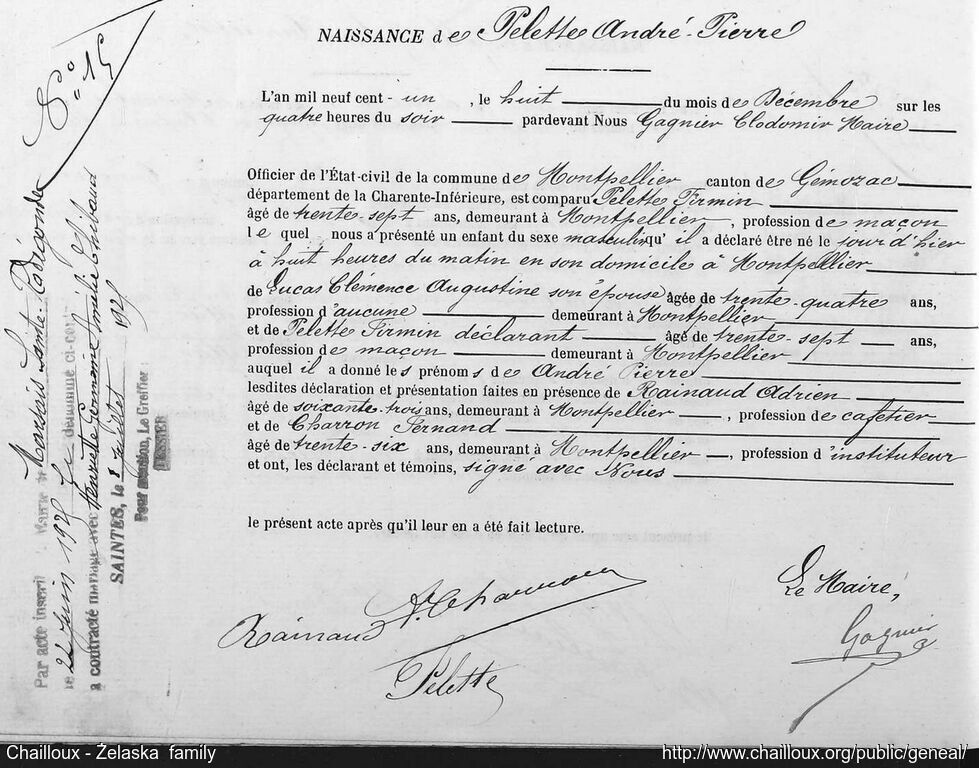 N° 15
NAISSANCE de Pelette André-Pierre
L'an mil neuf cent - un , le huit du mois de Décembre sur les
quatre heures du soir pardevant Nous Gagnier Clodomir Maire
Officier de l'État-civil de la commune de Montpellier canton de Gémozac
département de la Charente-Inférieure, est comparu Pelette Firmin
âgé de trente-sept ans, demeurant à Montpellier , profession de maçon
le quel nous a présenté un enfant du sexe masculin qu' il a déclaré être né le jour d'hier
à huit heures du matin en son domicile à Montpellier
de Lucas Clémence Augustine son épouse âgée de trente-quatre ans,
profession d'aucune demeurant à Montpellier
et de Pelette Firmin déclarant âgé de trente-sept ans,
profession de maçon demeurant à Montpellier
auquel il a donné les prénoms de André Pierre
lesdites déclaration et présentation faites en présence de Rainaud Adrien
âgé de soixante-trois ans, demeurant à Montpellier , profession de cafetier
et de Charron Fernand
âgé de trente-six ans, demeurant à Montpellier , profession d'instituteur
et ont, les déclarant et témoins, signé avec Nous
le présent acte après qu'il leur en a été fait lecture.
Le Maire,
Rainaud
Pelette
Gagnier
Par acte inscrit Mairie de Marsais Sainte-Radégonde
le 22 Juin 1925 le dénommé ci-contre
a contracté mariage avec Henriette Germaine Amélie
SAINTES, le 1 juillet 1925
Pour mention, Le Greffier
TESSIER
Chailloux - Żelaska family
http://www.chailloux.org/public/geneal/